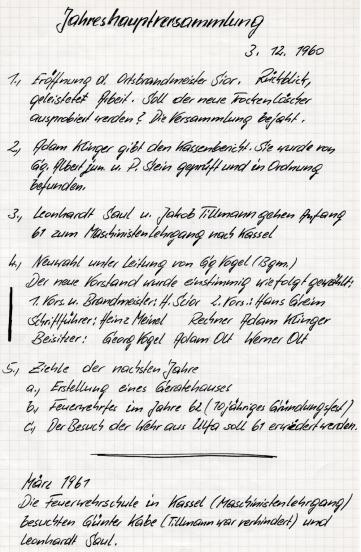 Jahreshauptversammlung
3. 12. 1960
1., Eröffnung d. Ortsbrandmeister Sior. Rückblick,
geleistetet Arbeit. Soll der neue Trockenlöscher
ausprobiert werden? Die Versammlung bejaht.
2., Adam Künger gibt den Kassenbericht. Sie wurde von
Gg. Albert jun. u. P. Stein geprüft und in Ordnung
befunden.
3., Leonhardt Saul u. Jakob Tillmann gehen Anfang
61 zum Maschinistenlehrgang nach Kassel
4., Neuwahl unter Leitung von Gg Vogel (Bgm.)
Der neue Vorstand wurde einstimmig wie folgt gewählt:
1. Vors. u. Brandmeister: H. Sior 2. Vors.: Hans Greim
Schriftführer: Heinz Meinel Rechner Adam Künger
Beisitzer: Georg Vogel Adam Olt Werner Olt
5., Ziehle der nächsten Jahre
a., Erstellung eines Gerätehauses
b., Feuerwehrfes im Jahre 62 (70 jähriges Gründungsfest)
c., Der Besuch der Wehr aus Ulfa soll 61 erwiedert werden.
März 1961
Die Feuerwehrschule in Kassel (Maschinistenlehrgang)
besuchten Günter Kabe (Tillmann war verhindert) und
Leonhardt Saul.